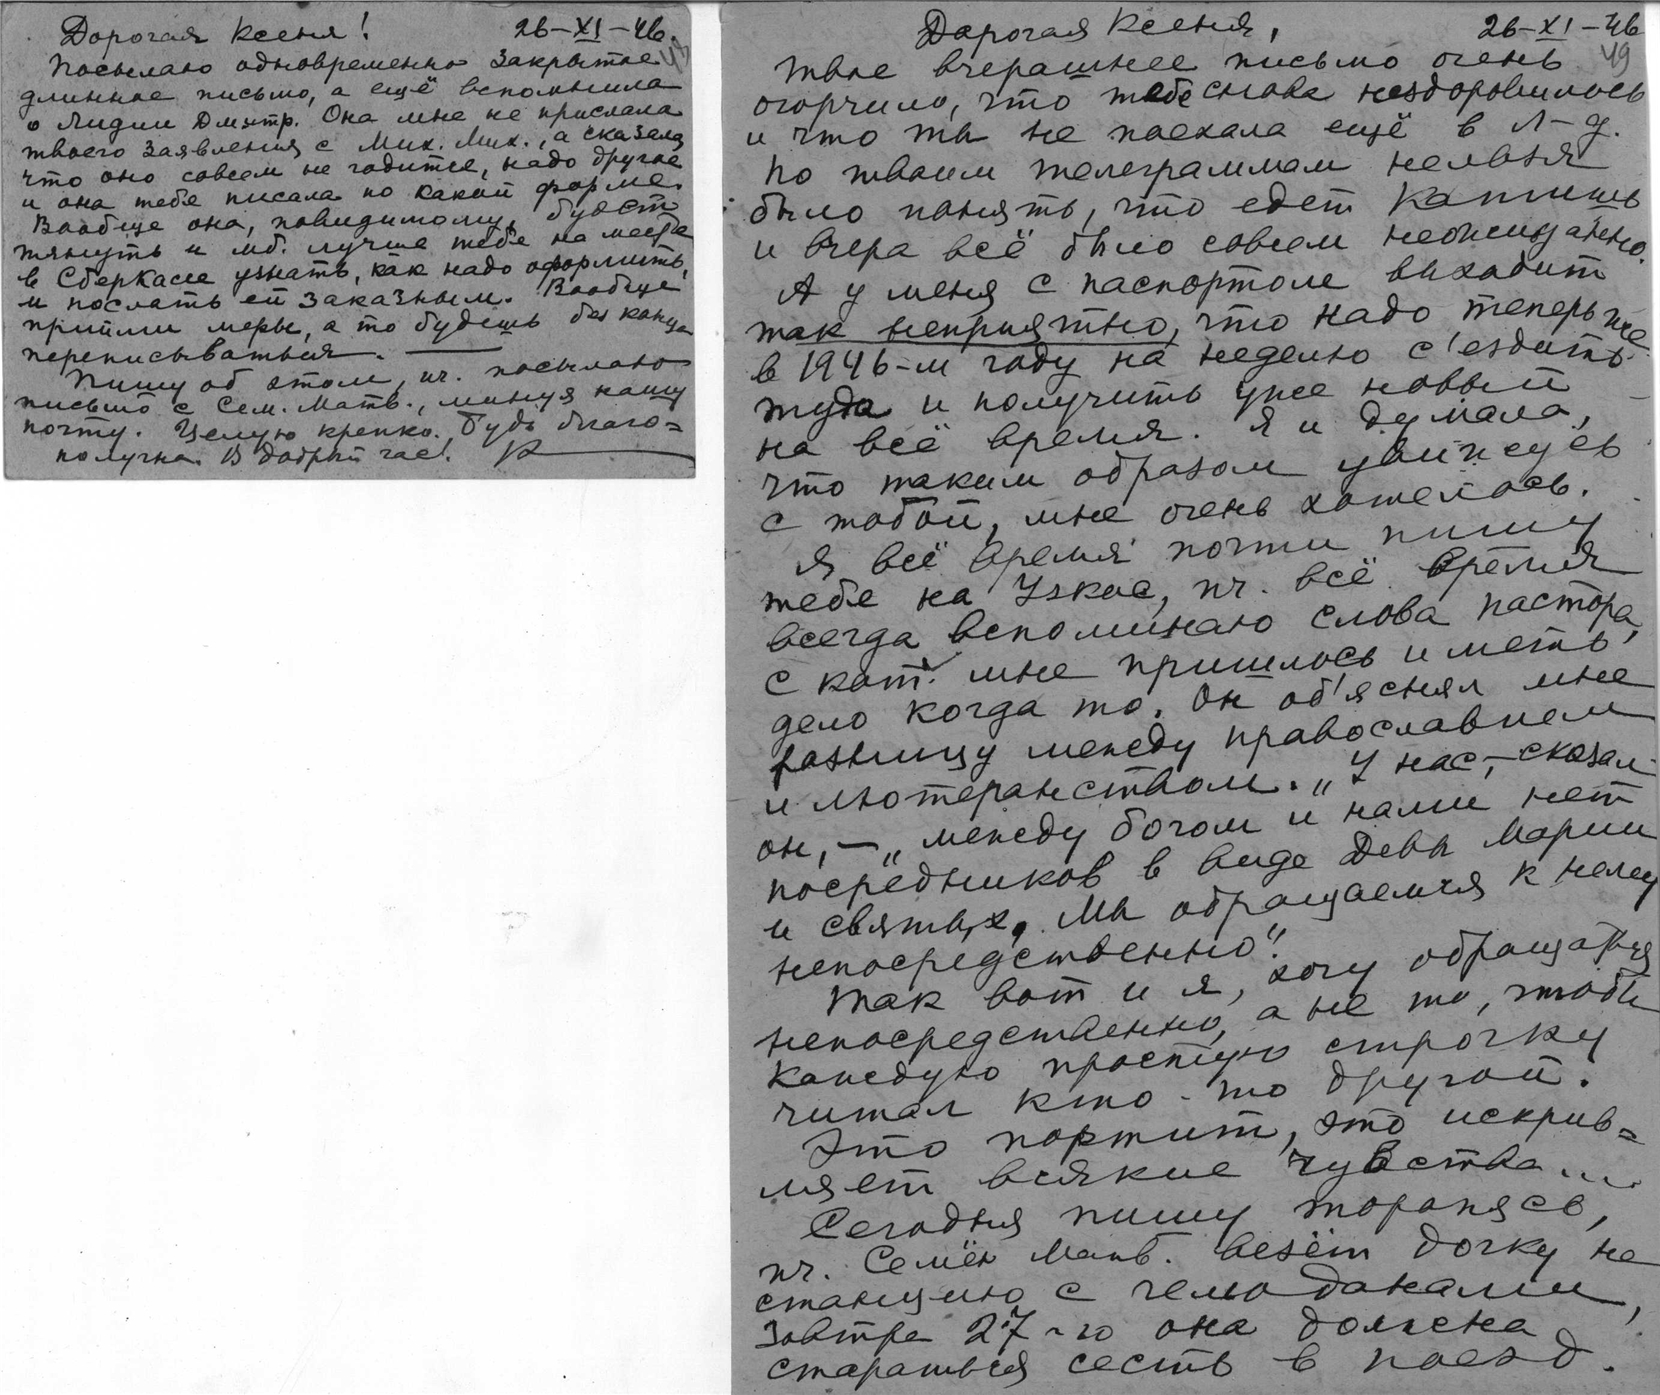 Дорогая Ксеня! 26-XI-46.
Посылаю одновременно закрытое
длинное письмо, а ещё вспомнила
о Лидии Дмитр. Она мне не прислала
твоего заявления с Мих. Мих., а сказала
что оно совсем не годится, надо другое
и она тебе писала по какой форме.
Вообще она, повидимому, будет
тянуть и мб. лучше тебе на месте
в Сберкассе узнать, как надо оформить,
и послать ей заказным. Вообще
прийми меры, а то будешь без конца
переписываться. —
Пишу об этом, пч. посылаю
письмо с Сем. Матв., минуя нашу
почту. Целую крепко. Будь благо=
получна. В добрый час!
Дорогая Ксеня, 26-XI-46
49
твое вчерашнее письмо очень
огорчило, что тебе снова нездоровилось
и что ты не поехала ещё в Л-д.
По твоим телеграммам нельзя
было понять, что едет
и вчера всё было совсем неожиданно.
А у меня с паспортом выходит
так неприятно, что надо теперь же
в 1946-м году на неделю с'ездить
туда и получить уже новый
на всё время. Я и думала,
что таким образом увижусь
с тобой, мне очень хотелось.
Я всё время почти пишу
тебе на Узкое, пч. всё время
всегда вспоминаю слова пастора,
с кот. мне пришлось иметь
дело когда то. Он об'яснял мне
разницу между православием
и лютеранством. „У нас, – сказал
он, – „между богом и нами нет
посредников в виде Девы Марии
и святых. Мы обращаемся к нему
непосредственно".
Так вот и я, хочу обращаться
непосредственно, а не то, чтобы
каждую простую строчку
читал кто-то другой.
Это портит, это искрив=
ляет всякие чувства....
Сегодня пишу торопясь,
пч. Семён Матв. везёт дочку на
станцию с чемоданами,
завтра 27-го она должна
стараться сесть в поезд.